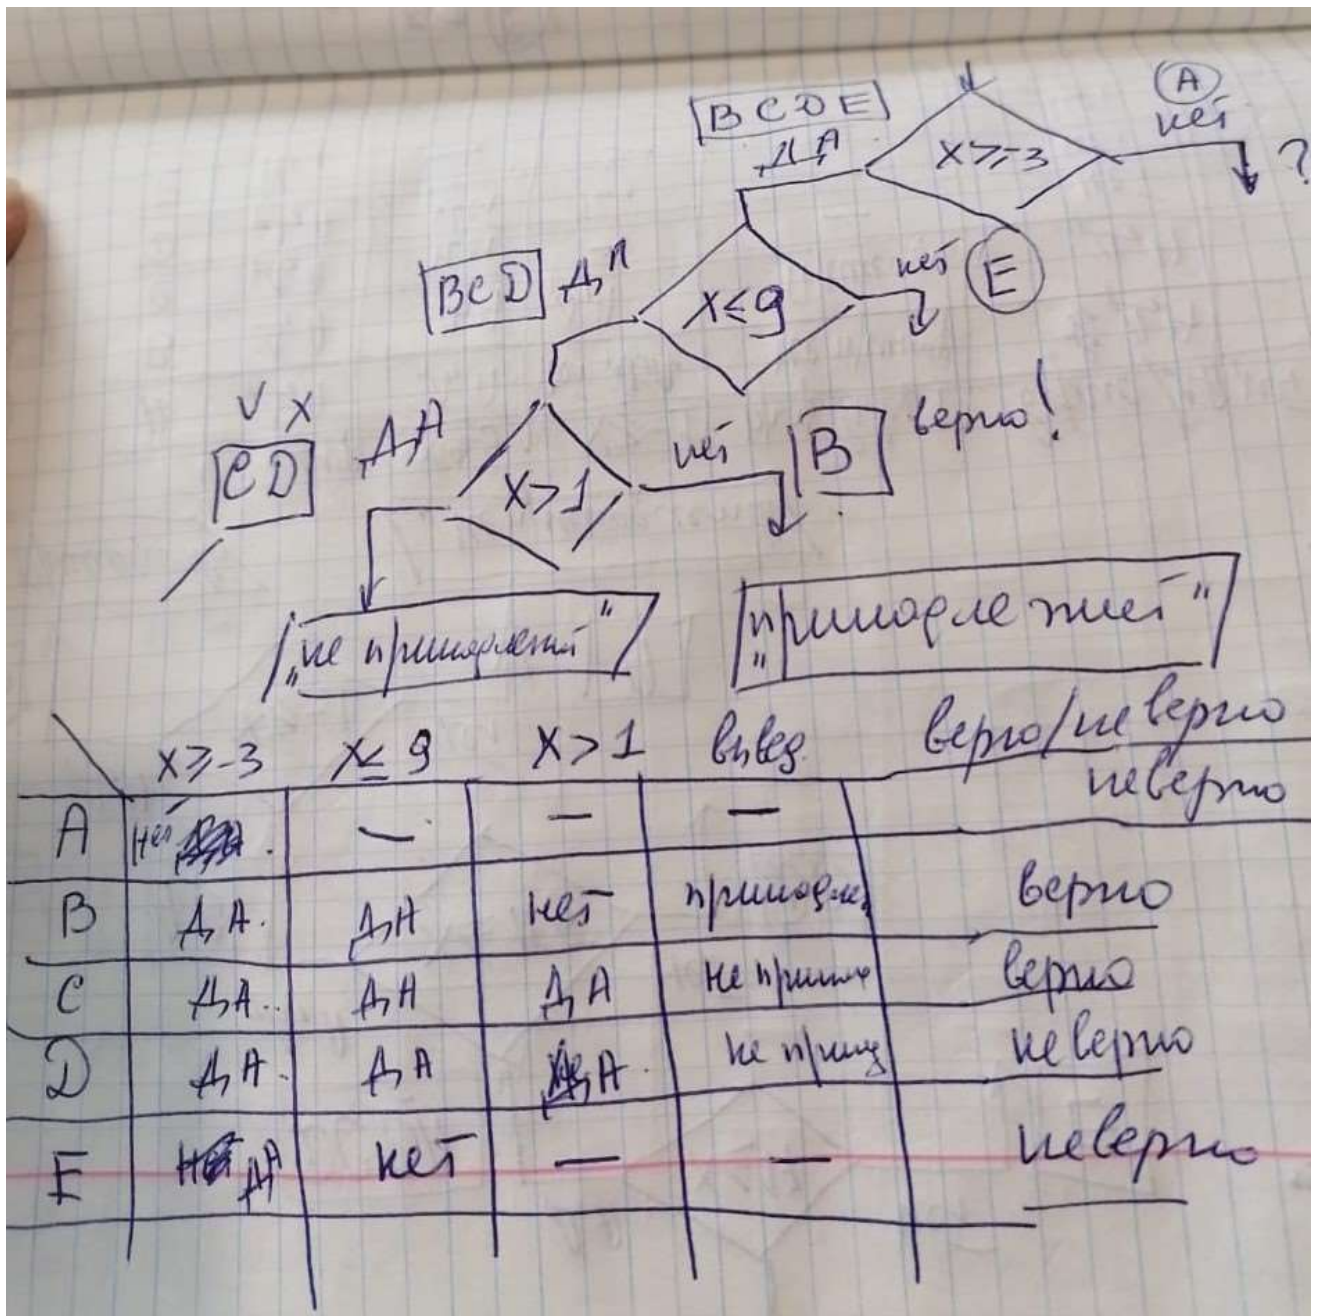 A
B C D E
нет
ДА
X ≥ -3
?
B C D
ДА
нет
E
X ≤ 9
V X
C D
ДА
нет
B
верно!
X > 1
„не принадлежит"
„принадлежит"
X ≥ -3 X ≤ 9 X > 1 вывод верно/неверно
A нет — — — неверно
B ДА. ДА нет принадле. верно
C ДА.. ДА ДА не принад верно
D ДА. ДА ДА. не принад неверно
E ДА нет — — неверно